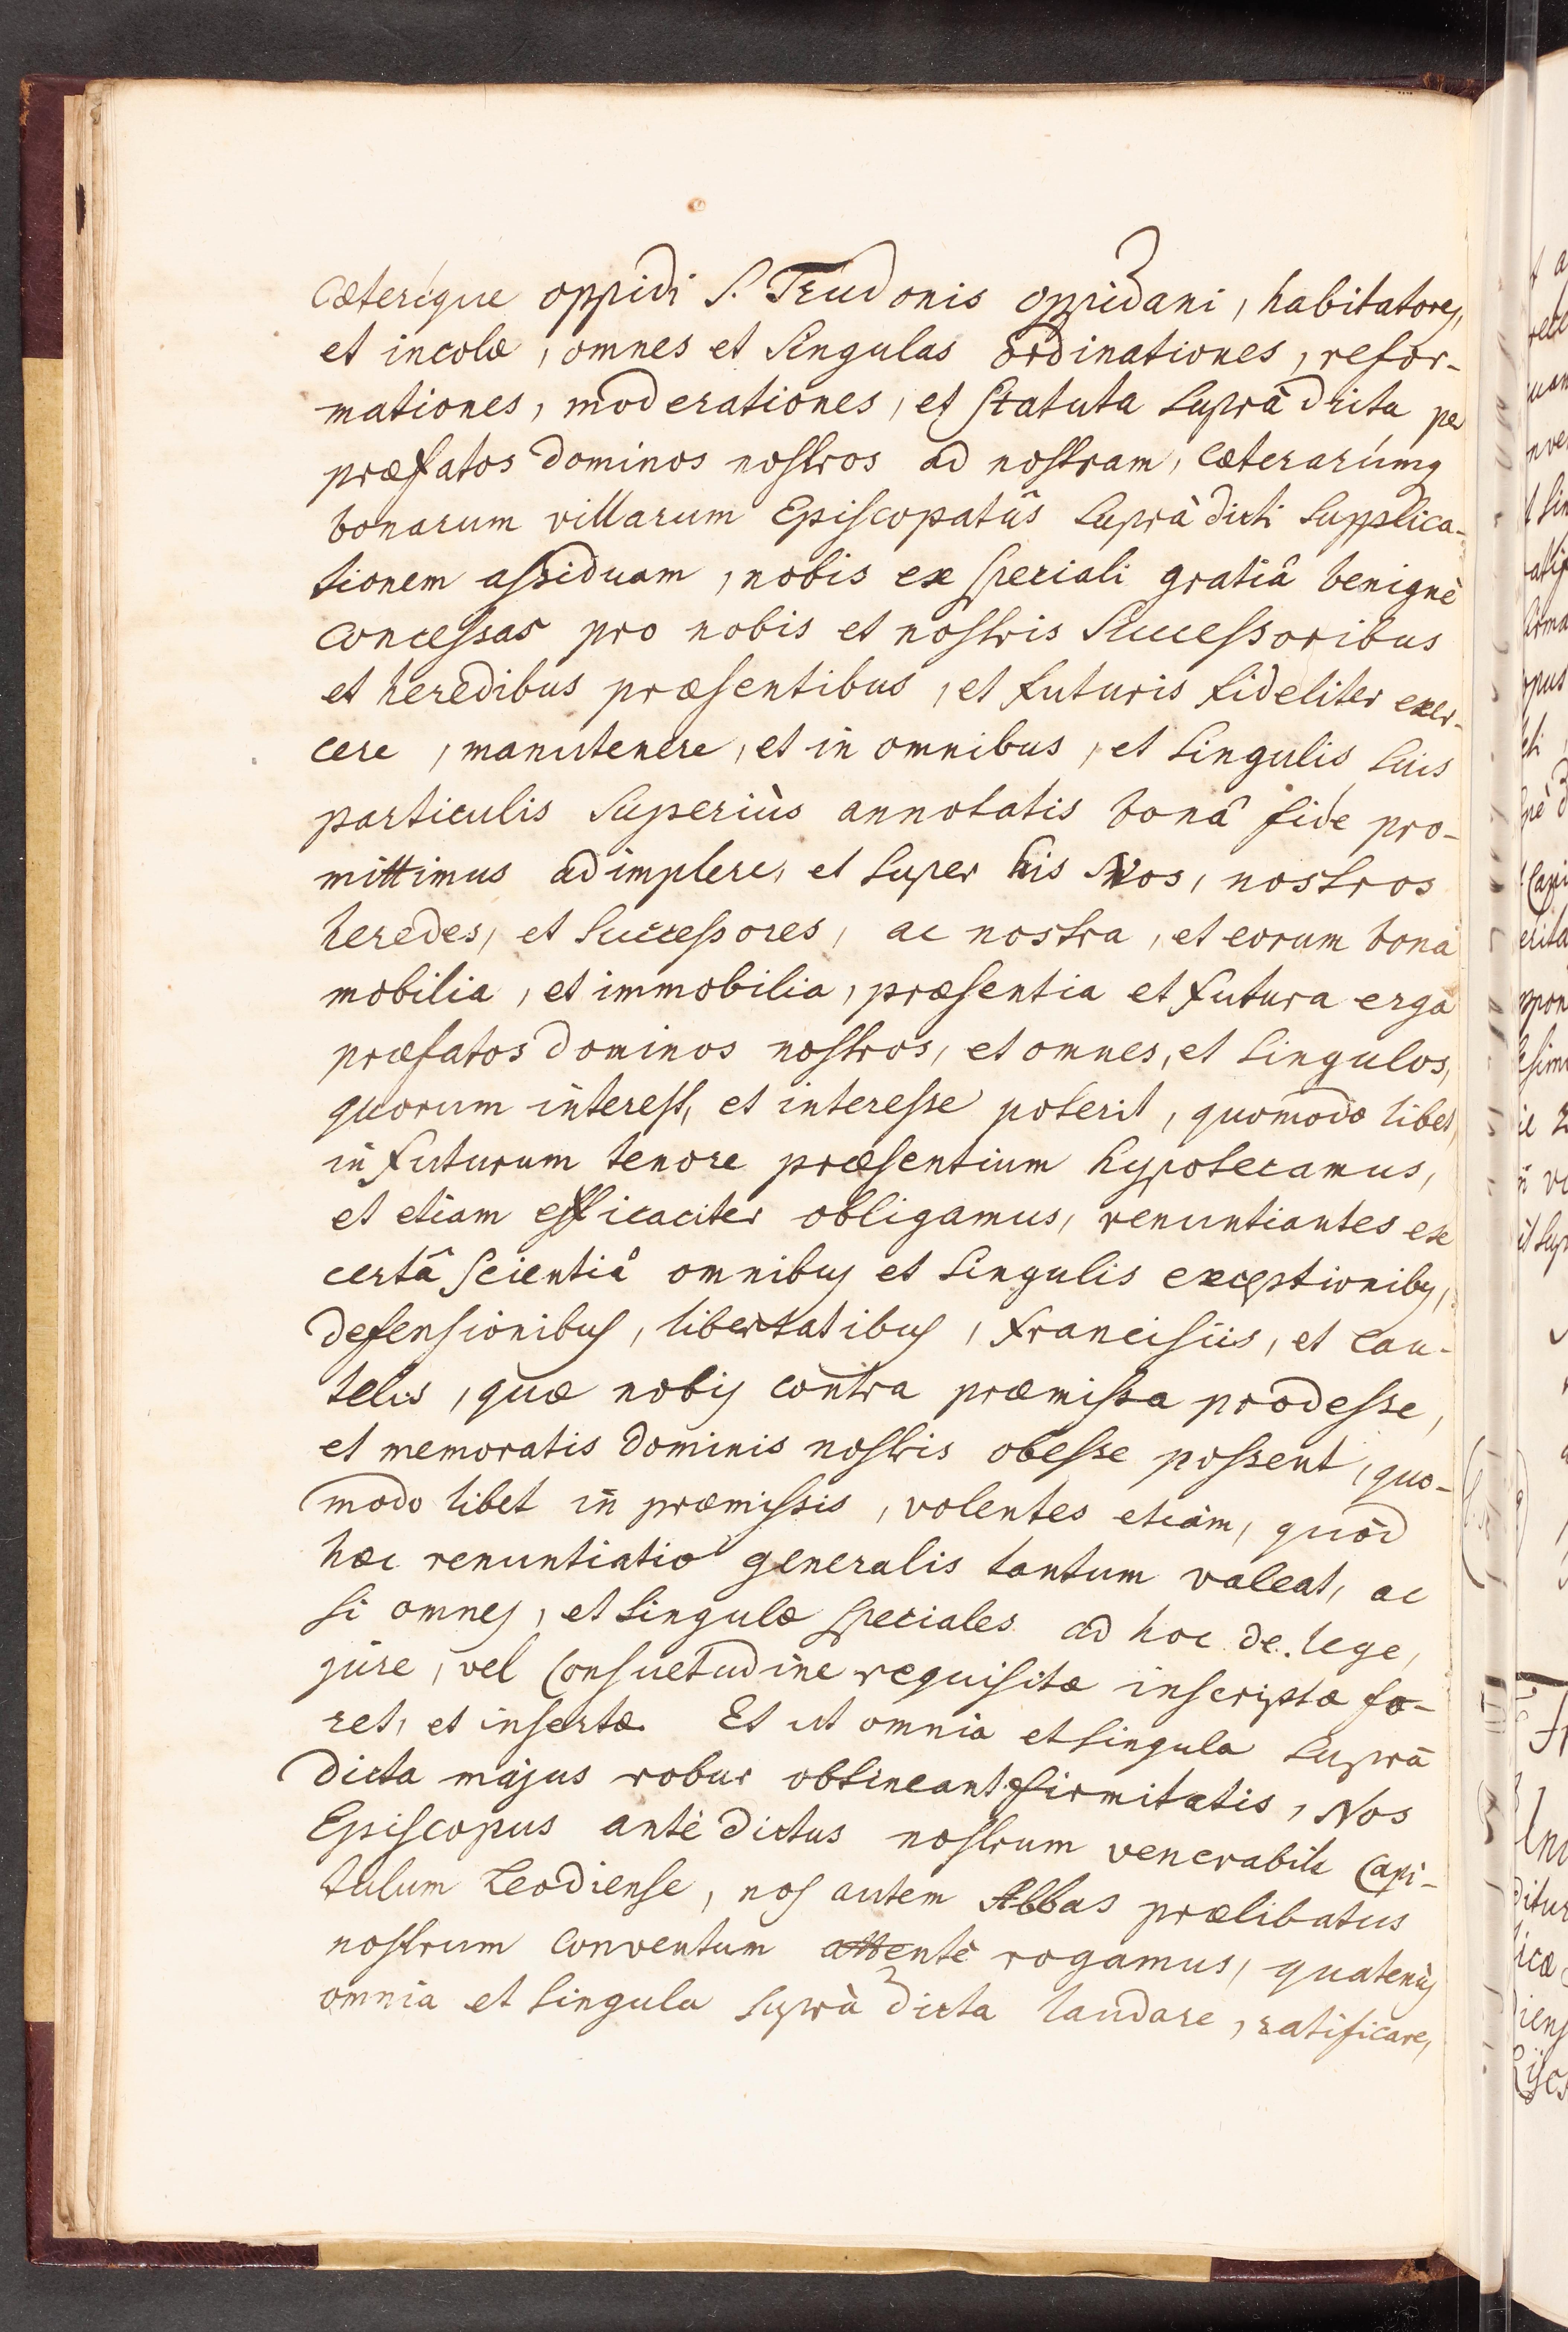 Cæterique oppidi S. Trudonis oppidani, habitatores,
et incolæ, omnes et Singulas ordinationes, refor-
mationes, moderationes, et Statuta Suprà dicta per
præfatos dominos nostros ad nostram, Cæterarúmq
bonarum villarum Episcopatûs Suprà dicti Supplica-
tionem assiduam, nobis ex speciali gratiâ benignè
Concessas pro nobis et nostris Successoribus
et heredibus præsentibus, et futuris fideliter exer-
cere, manutenere, et in omnibus, et Singulis Suis
particulis Superiùs annotatis bonâ fide pro-
mittimus adimplere, et Super his Nos, nostros
heredes, et Successores, ac nostra, et eorum bona
mobilia, et immobilia, præsentia et futura erga
præfatos dominos nostros, et omnes, et Singulos,
quorum interest, et interesse poterit, quomodo libet,
in futurum tenore præsentium hypotecamus,
et etiam efficaciter obligamus, renuntiantes ex
certâ scientiâ omnibus et Singulis exceptionibus,
defensionibus, libertatibus, francisiis, et Cau-
telis, quæ nobis contra præmissa prodesse,
et memoratis dominis nostris obesse possent, quo-
modo libet in præmissis, volentes etiàm, quòd
hæc renuntiatio generalis tantum valeat, ac
si omnes, et Singulæ speciales ad hoc de lege,
jure, vel Consuetudine requisitæ inscriptæ fo-
ret, et insertæ. Et ut omnia et Singula Suprà
dicta majus robur obtineant firmitatis, Nos
Episcopus antè dictus nostrum venerabile Capi-
tulum Leodiense, nos autem Abbas prælibatus
nostrum Conventum attentè rogamus, quatenùs
omnia et Singula Suprà dicta laudare, ratificare,